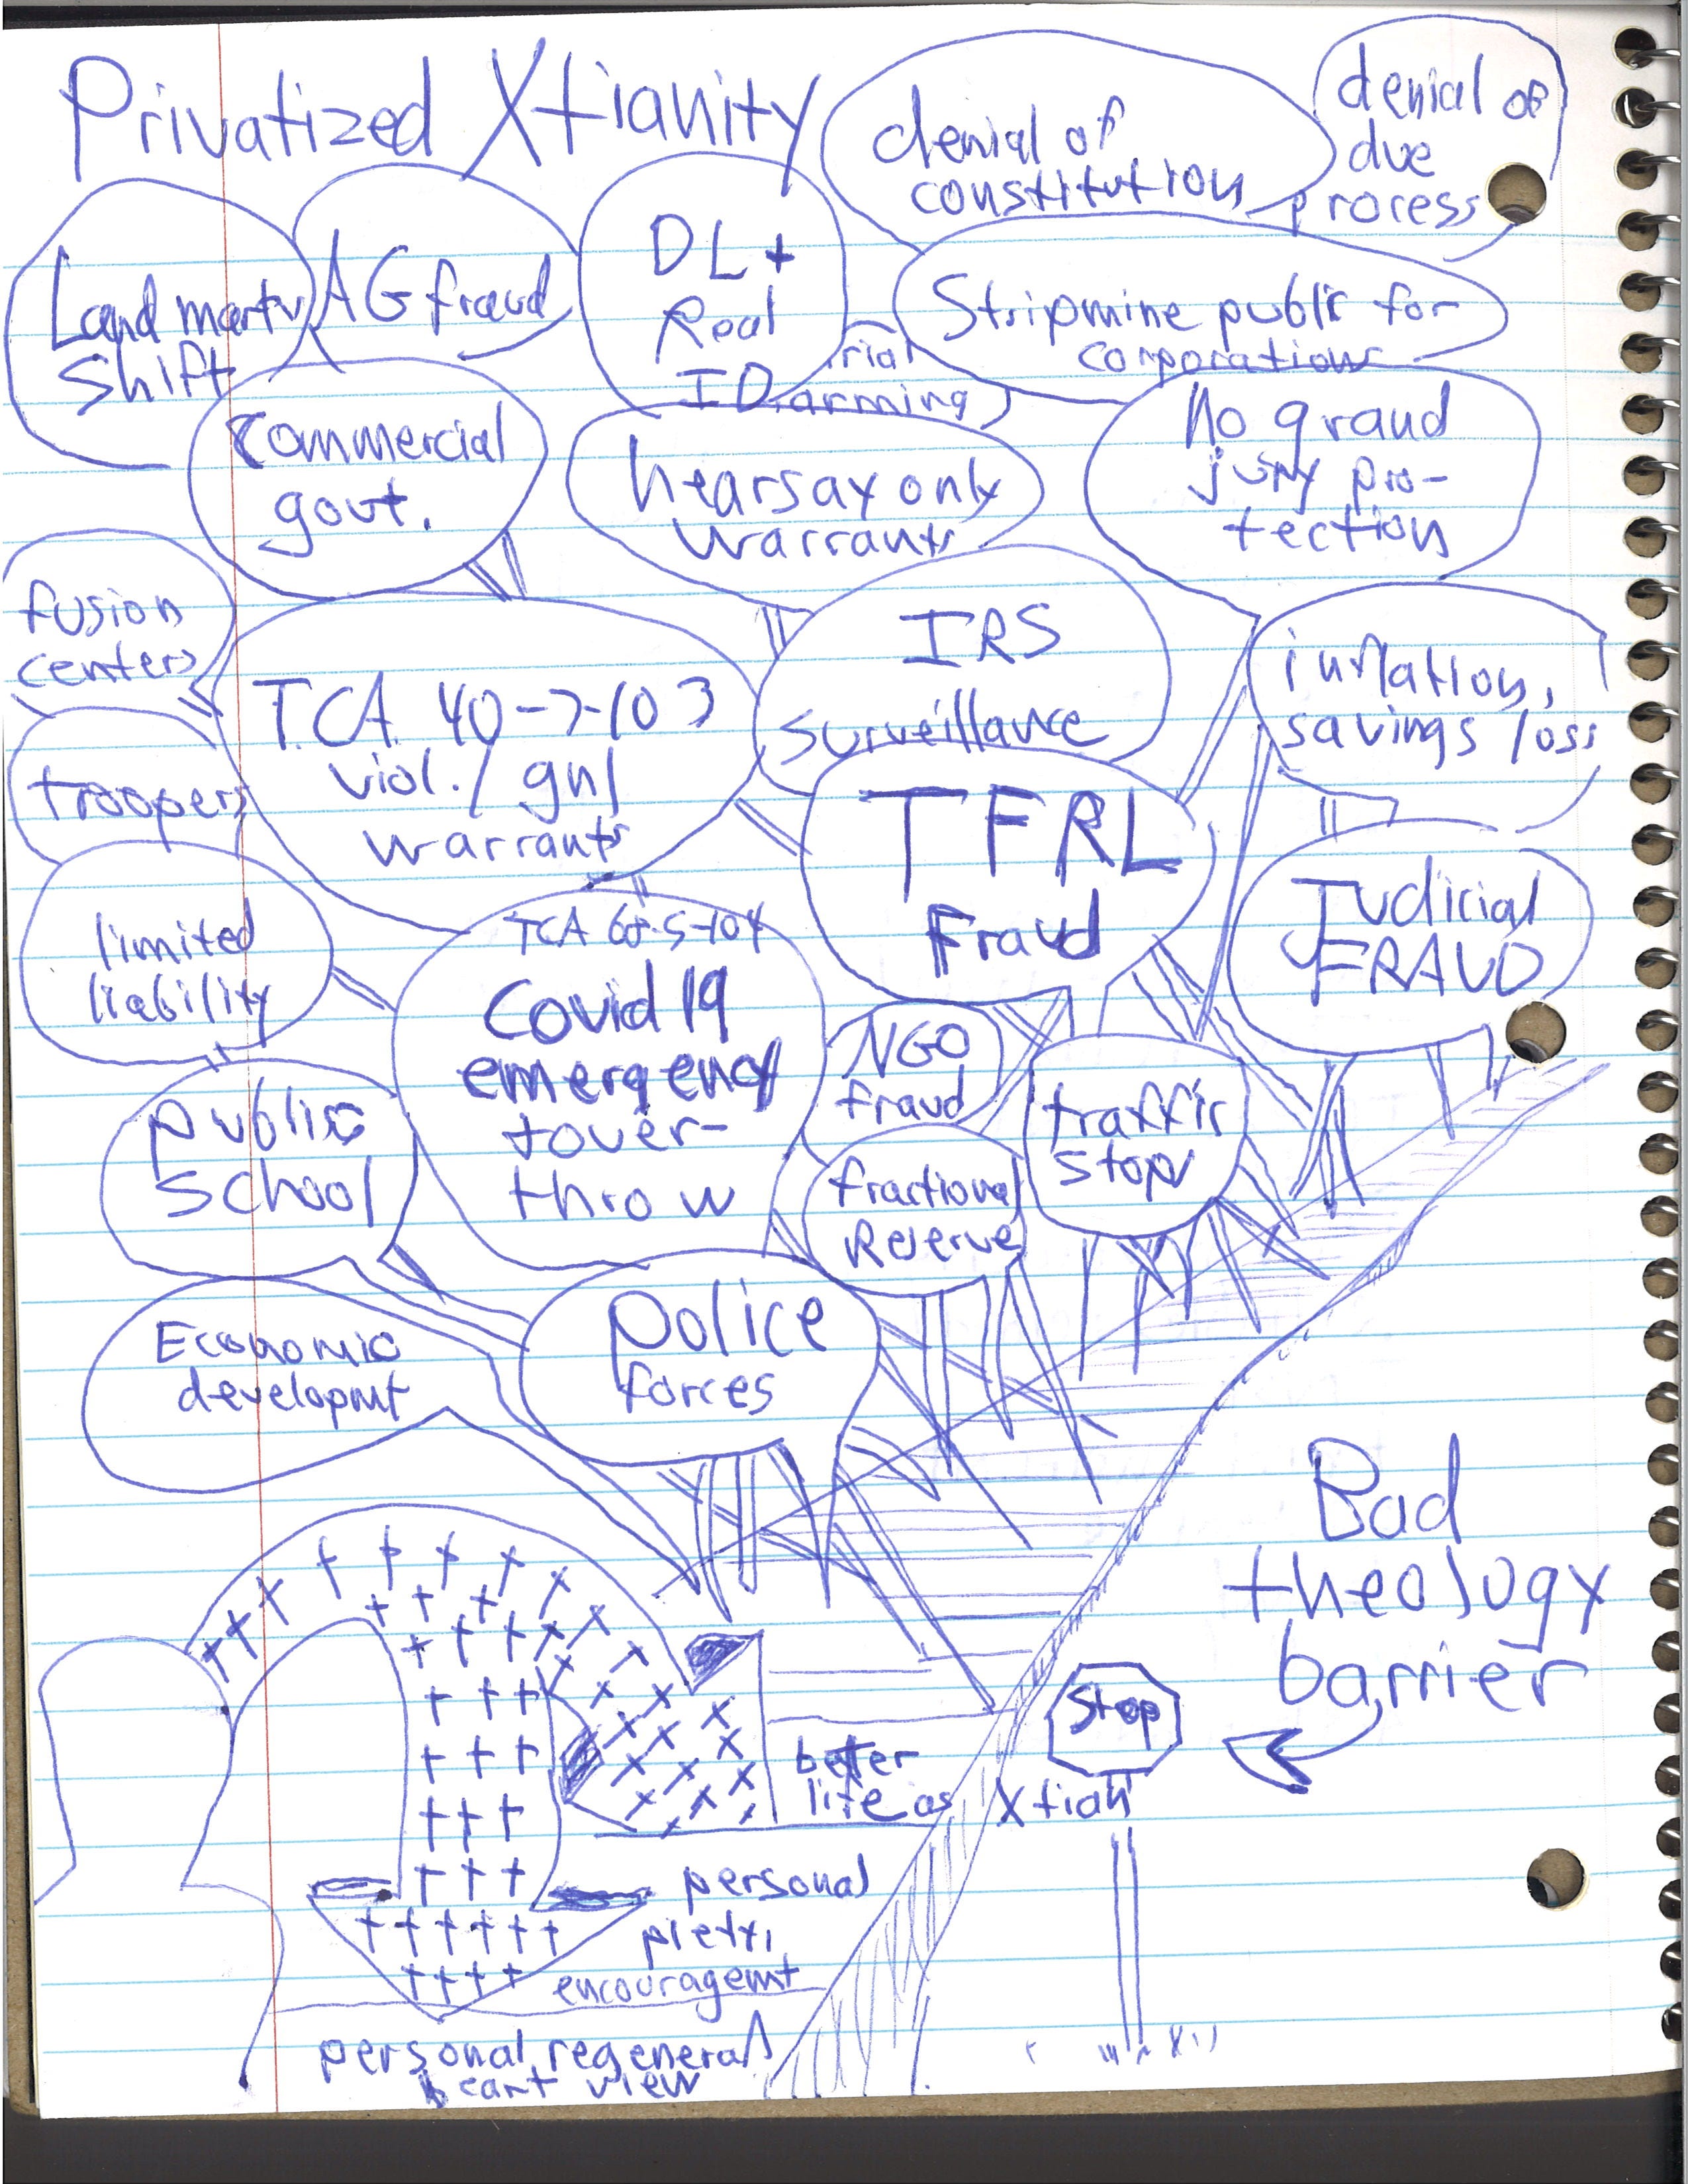 Privatized Xtianity
denial of
constitution
denial of
due
process
Land
shift
AG fraud
DL +
Real
ID
Stripmine public for
corporations
arming
commercial
govt.
hearsay only
warrants
No grand
jury pro-
tection
fusion
centers
TCA 40-7-103
viol. / gnl
warrants
IRS
surveillance
inflation,
savings loss
troopers
TFRL
Fraud
limited
liability
TCA
Covid 19
emergency
tover-
throw
Judicial
FRAUD
NGO
fraud
traffic
stop
public
school
fractional
Reserve
Economic
developmt
police
forces
Bad
theology
barrier
Stop
better
life as Xtian
personal
encouragemt
personal
heart view